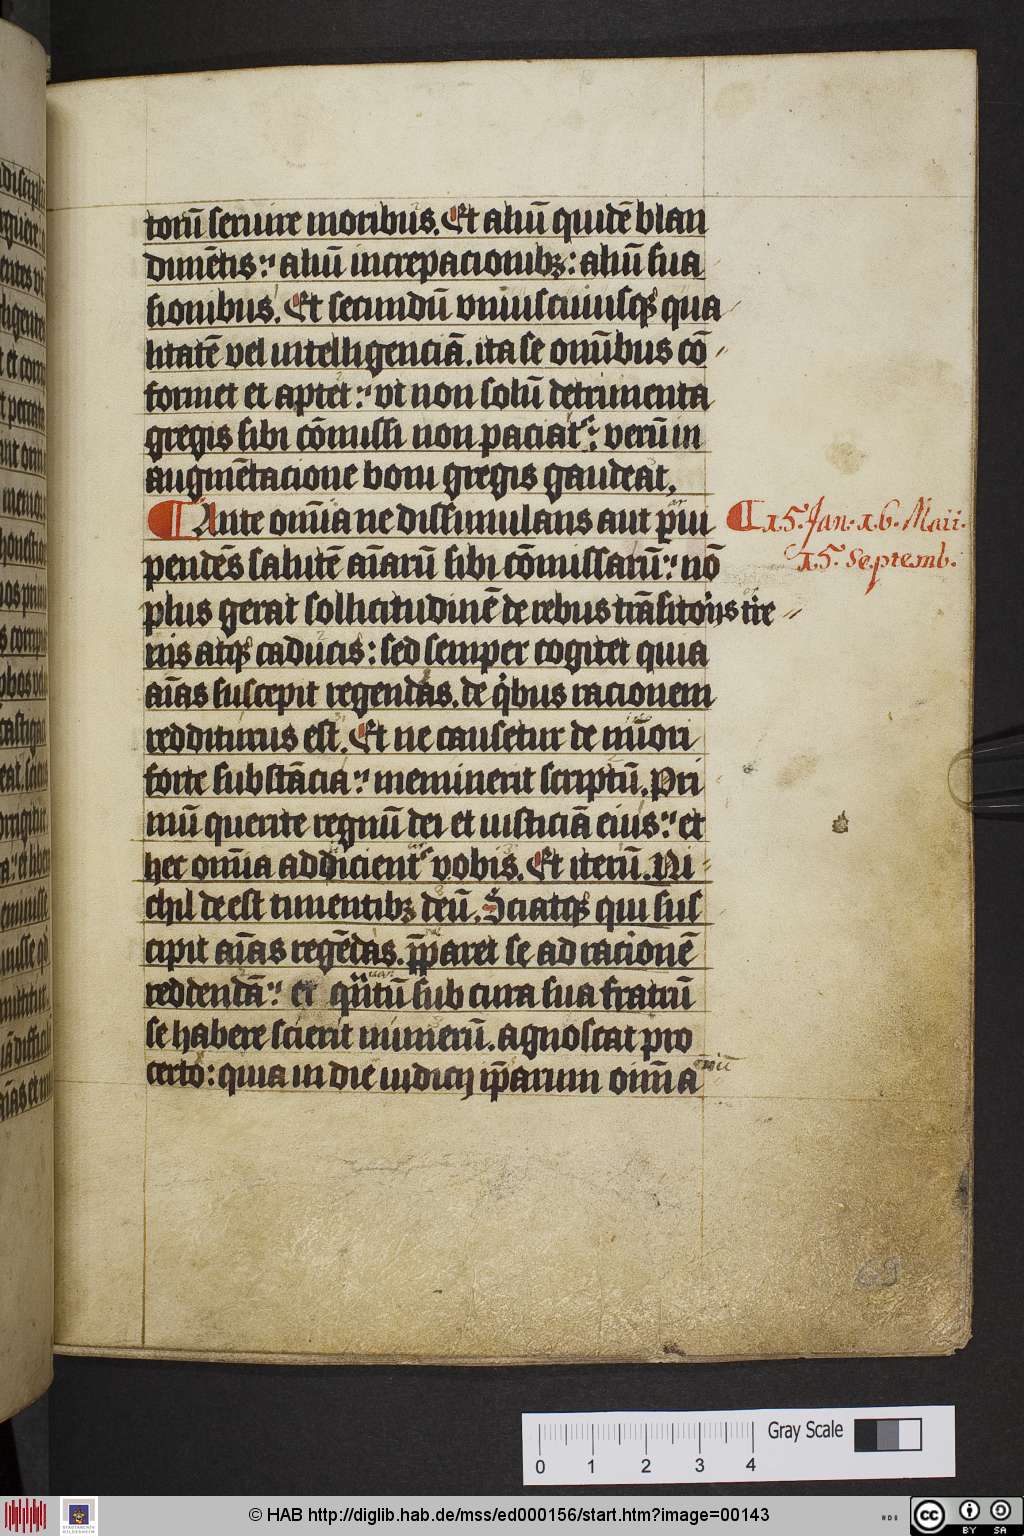 torū seruire moribus. Et aliū quidē blan
dimētis: aliū increpacionibꝫ: aliū sua
sionibus. Et secundū vniuscuiusqꝫ qua
litatē vel intelligenciā. ita se om̄ibus cō
formet et aptet: vt non solū detrimenta
gregis sibi cōmissi non paciatᷣ: verū in
augmētacione boni gregis gaudeat.
¶ Ante om̄ia ne dissimulans aut ꝑui
pendēs salutē aīarū sibi cōmissarū: nō
plus gerat sollicitudinē de rebus trāsitorijs t̄re
nis atqꝫ caducis: sed semper cogitet quia
aīas suscepit regendas. de qͥbus racionem
redditurus est. Et ne causetur de mīori
forte substācia: meminerit scriptū. Pri
mū querite regnū dei et iusticiā eius: et
hec om̄ia addicientᷣ vobis. Et iterū. Ni
chil deest timentibꝫ deū. Sciatqꝫ qui sus
cipit aīas regēdas. p̄paret se ad racionē
reddendā: et qͣntū sub cura sua fratrū
se habere scierit numerū. agnoscat pro
certo: quia in die iudicij ip̄arum om̄ia
¶ 15. Jan: 16. Maii.
15. Septemb.
69
0 1 2 3 4
Gray Scale
© HAB http://diglib.hab.de/mss/ed000156/start.htm?image=00143
cc BY SA